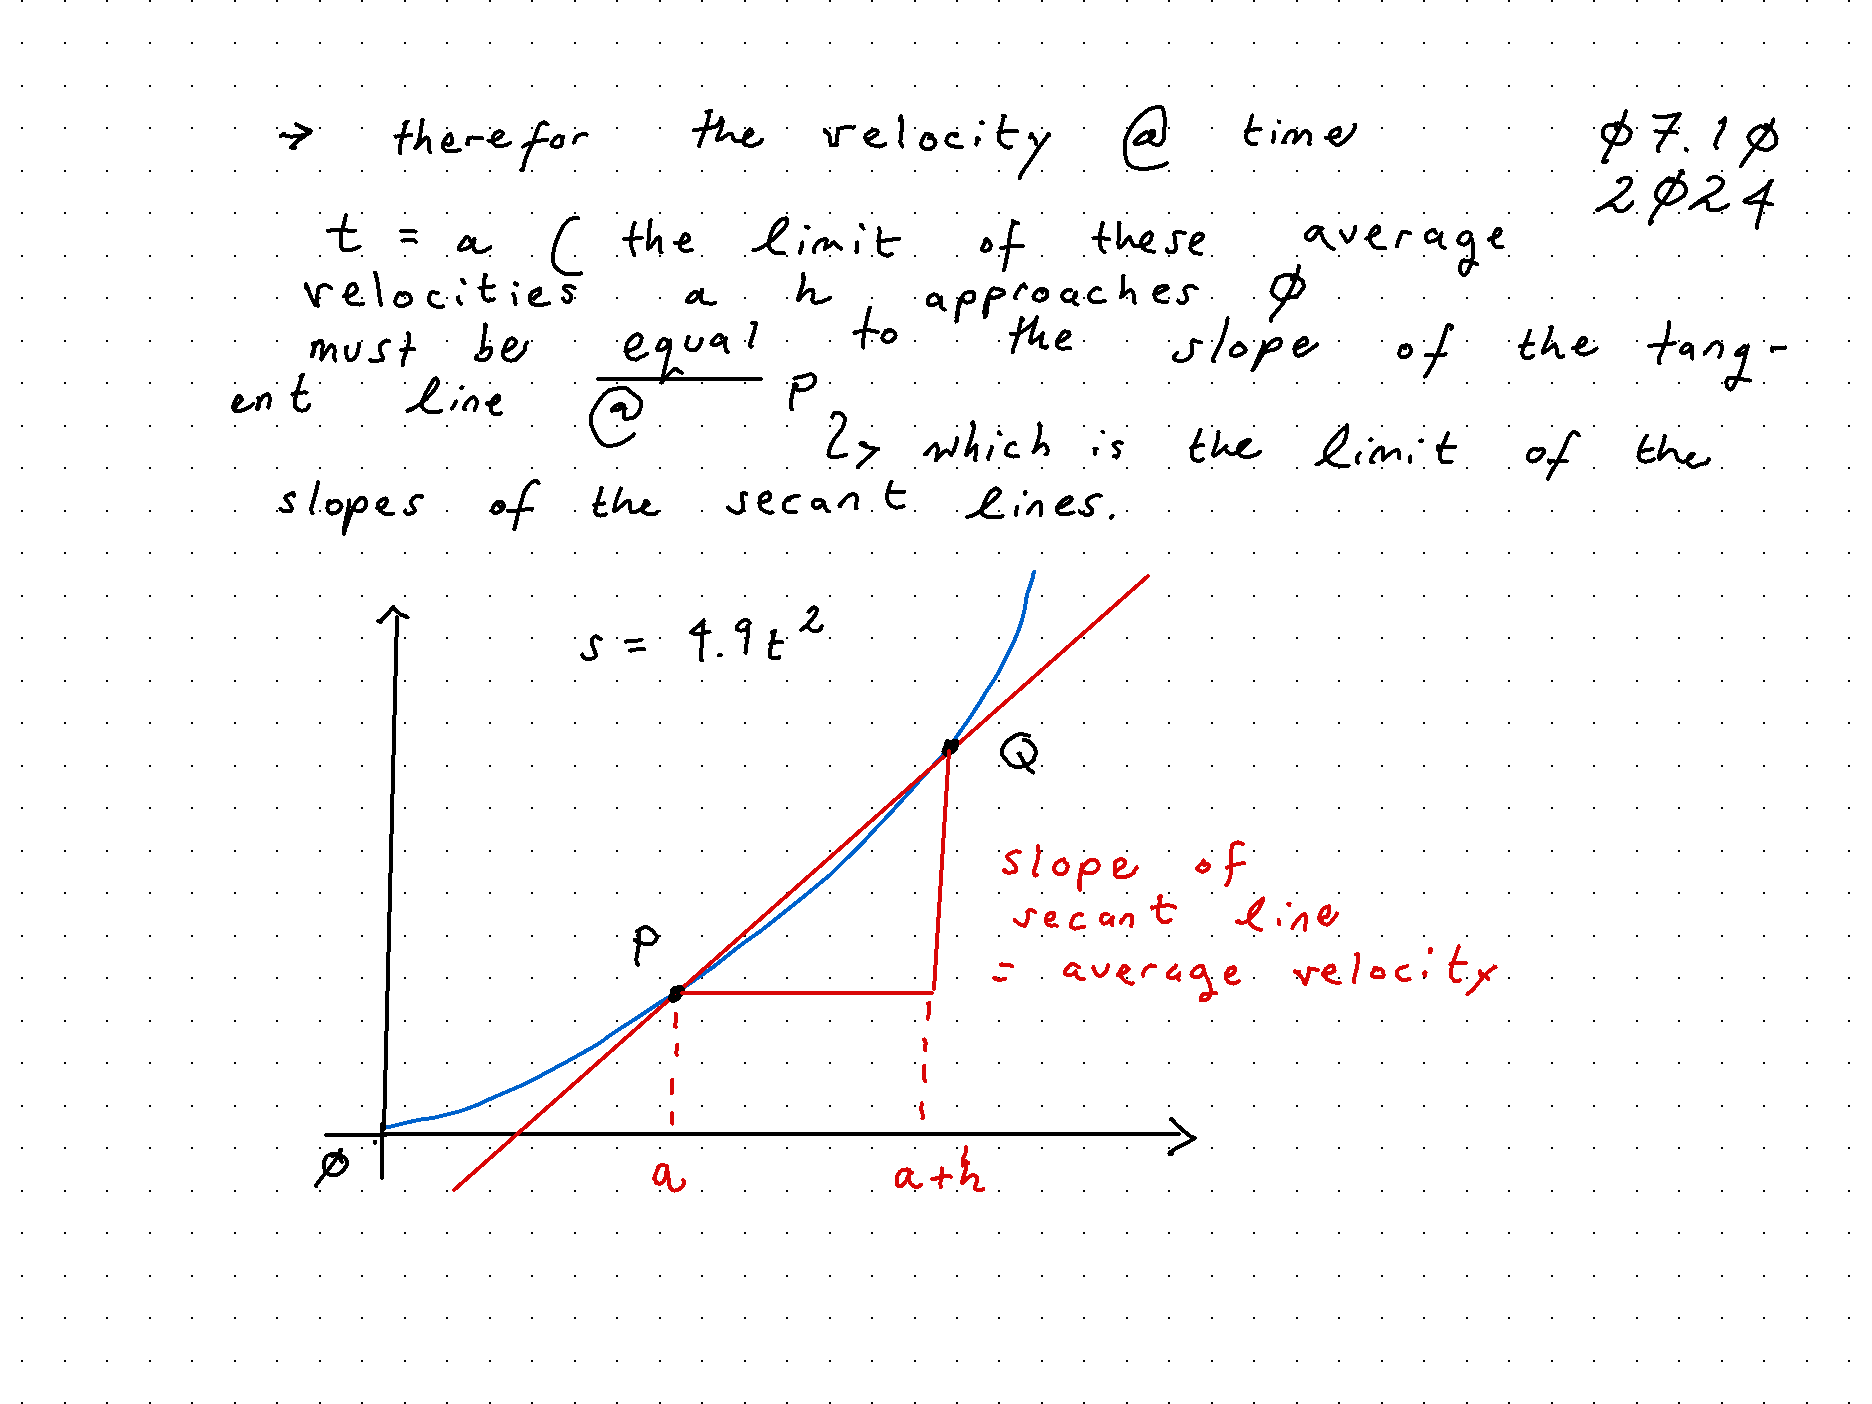 → therefor the velocity @ time
Ø7.1Ø
2Ø24
t = a ( the limit of these average
velocities a h approaches Ø
must be equal to the slope of the tang-
ent line @ P
↳ which is the limit of the
slopes of the secant lines.
s = 4.9t²
Q
slope of
secant line
= average velocity
P
Ø
a
a+h